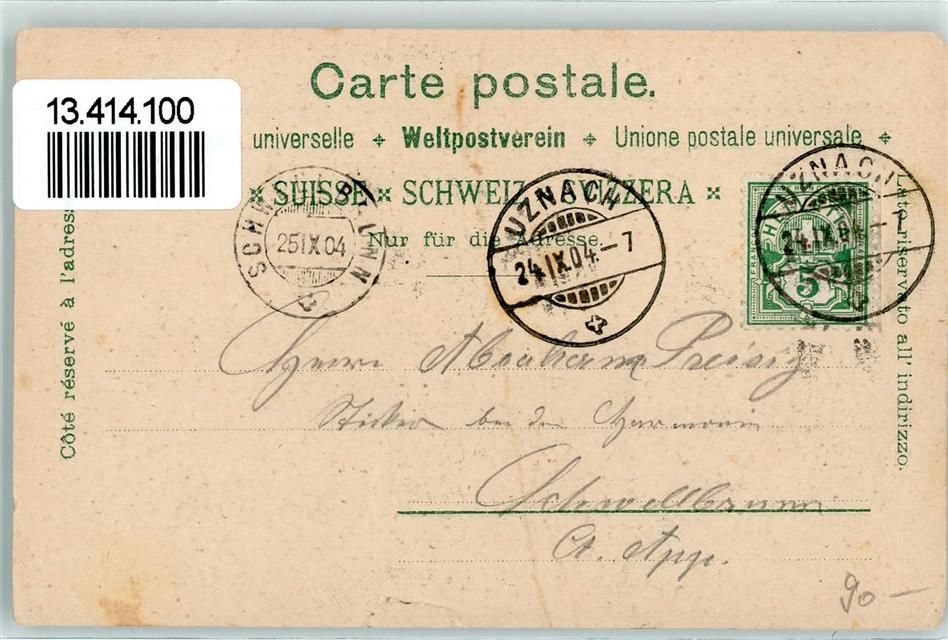 Carte postale.
13.414.100
universelle Weltpostverein Unione postale universale
SUISSE SCHWEIZ SVIZZERA
Nur für die Adresse.
Côté réservé à l'adresse
Lato riservato all' indirizzo.
25 IX 04
UZNACH
24.IX.04.–7
UZNACH
24.IX.04.–7
FRANCO
HELVETIA
5
Herrn Abraham Preisig
Sticker bei der Harmonie
Schwellbrunn
Ct. App.
90 –